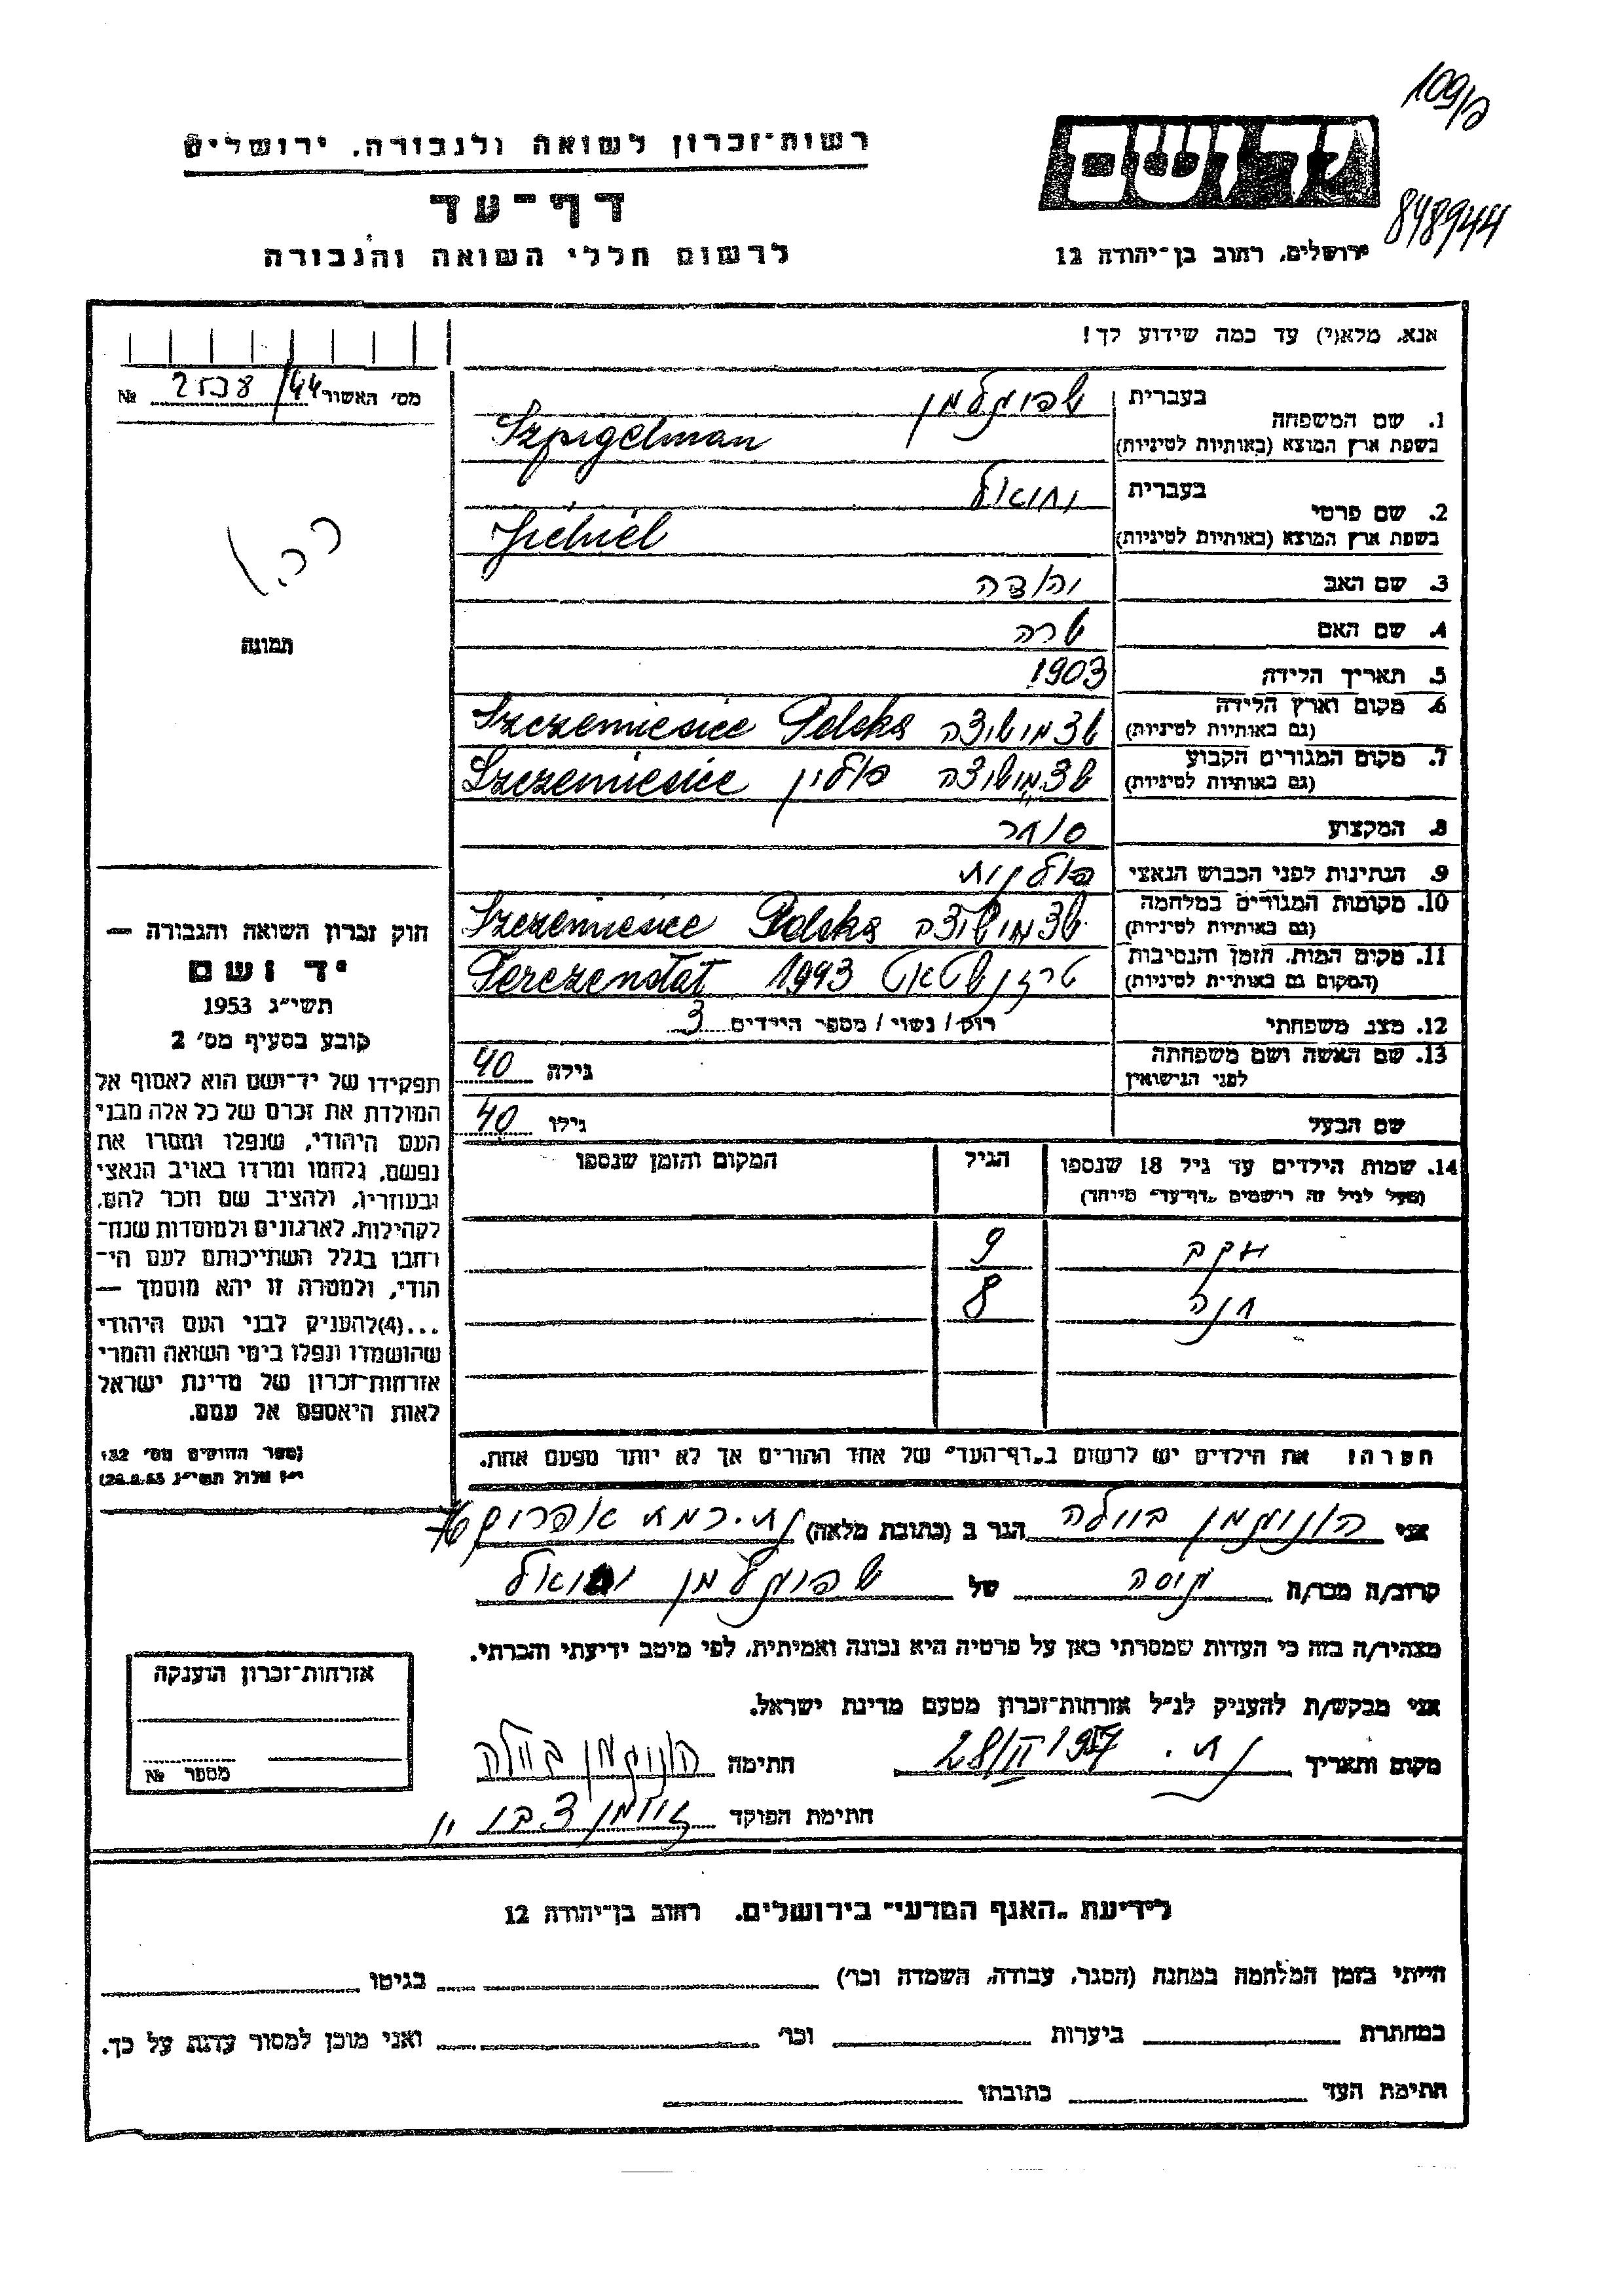 109/ב
רשות־זכרון לשואה ולגבורה, ירושלים
יד ושם
דף־עד
848944
לרשום חללי השואה והגבורה
ירושלים, רחוב בן־יהודה 12
אנא, מלא(י) עד כמה שידוע לך!
מס' האשור 44/ 2538 №
1. שם המשפחה בעברית שפיגלמן
בשפת ארץ המוצא (באותיות לטיניות) Szpigelman
2. שם פרטי בעברית יחיאל
בשפת ארץ המוצא (באותיות לטיניות) Jichiel
3. שם האב יהודה
4. שם האם שרה
5. תאריך הלידה 1903
6. מקום וארץ הלידה (גם באותיות לטיניות) Szczemiesice Polska
7. מקום המגורים הקבוע (גם באותיות לטיניות) פולין Szczemiesice
8. המקצוע סוחר
9. הנתינות לפני הכבוש הנאצי פולנית
10. מקומות המגורים במלחמה (גם באותיות לטיניות) Szczemiesice Polska
11. מקום המות, הזמן והנסיבות (המקום גם באותיות לטיניות) טרזנשטאט 1943 Terezenstat
12. מצב משפחתי רוק / נשוי / מספר הילדים 3
13. שם האשה ושם משפחתה לפני הנישואין גילה 40
שם הבעל גילו 40
14. שמות הילדים עד גיל 18 שנספו
(מעל לגיל זה רישמים "דף־עד" מייחד)
הגיל
המקום והזמן שנספו
יעקב 9
חנה 8
תמונה
חוק זכרון השואה והגבורה —
יד ושם
תשי״ג 1953
קובע בסעיף מס׳ 2
תפקידו של יד־ושם הוא לאסוף אל
המולדת את זכרם של כל אלה מבני
העם היהודי, שנפלו ומסרו את
נפשם, נלחמו ומרדו באויב הנאצי
ובעוזריו, ולהציב שם וזכר להם,
לקהילות, לארגונים ולמוסדות שנח־
רחבו בגלל השתייכותם לעם הי־
הודי, ולמטרה זו יהא מוסמך —
...(4) להעניק לבני העם היהודי
שהושמדו ונפלו בימי השואה והמרי
אזרחות־זכרון של מדינת ישראל
לאות היאספם אל עמם.
(ספר החוקים מס׳ 132
י״ז אלול תשי״ג 28.8.53)
הערה! את הילדים יש לרשום ב"דף־העד" של אחד ההורים אך לא יותר מפעם אחת.
אני הוניגמן ביילה הגר ב (כתובת מלאה)
קרוב/ה מכר/ה גיסה של שפיגלמן יחיאל
מצהיר/ה בזה כי העדות שמסרתי כאן על פרטיה היא נכונה ואמיתית, לפי מיטב ידיעתי והכרתי.
אני מבקש/ת להעניק לנ״ל אזרחות־זכרון מטעם מדינת ישראל.
מקום ותאריך 28/II 1957 חתימה הוניגמן ביילה
חתימת הפוקד
אזרחות־זכרון הוענקה
מספר №
לידיעת "האגף המדעי" בירושלים, רחוב בן־יהודה 12
הייתי בזמן המלחמה במחנה (הסגר, עבודה, השמדה וכו׳) בגיטו
במחתרת ביערות וכו׳ ואני מוכן למסור עדות על כך.
חתימת העד כתובתו